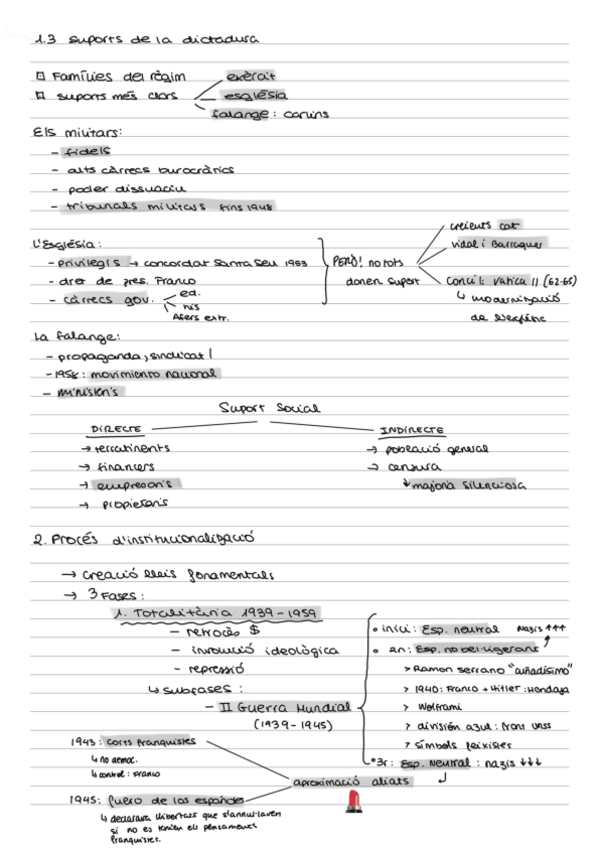 1.3 suports de la dictadura
□ Famílies del règim
□ suports més clars
exèrcit
església
falange: carlins
Els militars:
- fidels
- alts càrrecs burocràtics
- poder dissuaciu
- tribunals militars fins 1948
L'Església:
- privilegis → concordat Santa Seu 1953
- dret de pres. Franco
- càrrecs gov.
ed.
his
Afers extr.
PERÒ! no tots
donen suport
creients cat
vidal i Barraquer
Concili Vaticà II (62-65)
↳ modernització
de l'església
La falange:
- propaganda, sindicat
- 1958: movimiento nacional
- ministeris
Suport Social
DIRECTE
→ terratinents
→ financers
→ empresaris
→ propietaris
INDIRECTE
→ població general
→ censura
↓ majoria silenciosa
2. Procés d'institucionalització
→ creació lleis fonamentals
→ 3 Fases:
1. Totalitària 1939-1959
- retrocés $
- involució ideològica
- repressió
↳ subfases:
- II Guerra Mundial
(1939-1945)
• inici: Esp. neutral nazis ↑↑↑
• 2n: Esp. no bel·ligerant
> Ramon serrano "cuñadísimo"
> 1940: Franco + Hitler: Hendaya
> Wolframi
> división azul: front urss
> símbols feixistes
• 3r: Esp. Neutral: nazis ↓↓↓
aproximació aliats
1943: corts franquistes
↳ no democ.
↳ control: Franco
1945: fuero de los españoles
↳ declarava llibertats que s'annul·laven
si no es tenien els pensaments
franquistes.